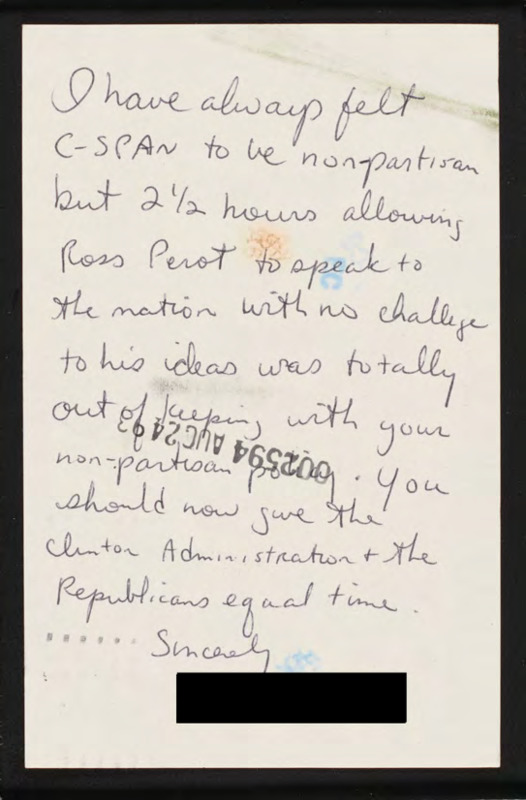 I have always felt
C-SPAN to be non-partisan
but 2 1/2 hours allowing
Ross Perot to speak to
the nation with no challege
to his ideas was totally
out of keeping with your
002594 AUG 24 93
non-partisan policy. You
should now give the
Clinton Administration + the
Republicans equal time.
Sincerely